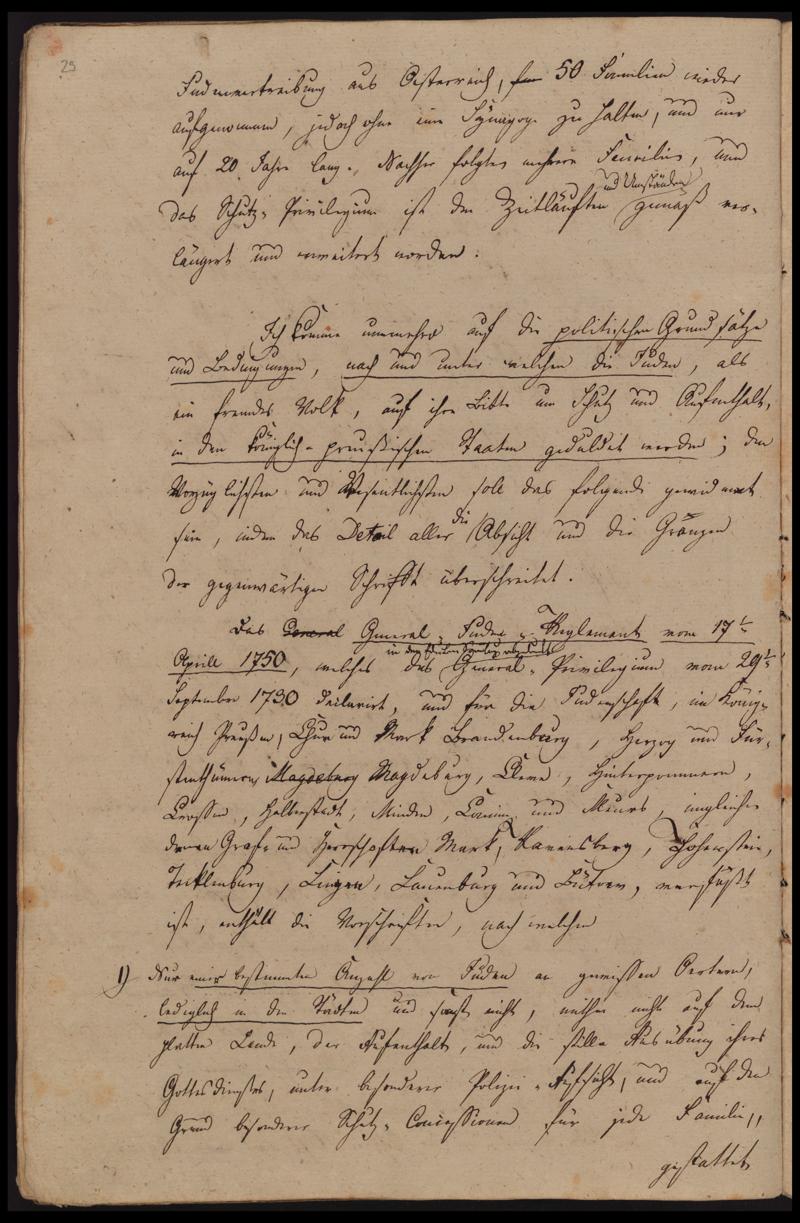 29
Judenvertreibung aus Oesterreich, 50 Familien wieder
aufgenommen, jedoch ohne eine Synagoge zu halten, und nur
auf 20 Jahre lang. Nachher folgten mehrere Familien, und
und Umständen
das Schutz-Privilegium ist den Zeitläuften gemäß ver-
längert und erweitert worden.
Ich komme nunmehro auf die politischen Grundsätze
und Bedingungen, nach und unter welchen die Juden, als
ein fremdes Volk, auf ihre Bitte um Schutz und Aufenthalt,
in den Königlich-preußischen Staaten geduldet werden; den
Vorzüglichsten und Wesentlichsten soll das folgende gewidmet
sein, indem das Detail aller die Absicht und die Gränzen
der gegenwärtigen Schrift überschreitet.
Das General General-Juden-Reglement vom 17t
Aprill 1750, welches das General-Privilegium vom 29t
September 1730 declarirt, und für die Judenschaft, im König-
reich Preußen, Chur und Mark Brandenburg, Herzog und Für-
stenthümern Magdeburg Magdeburg, Cleve, Hinterpommern,
Crossen, Halberstadt, Minden, Camin und Meurs, imgleichen
denen Graf- und Herrschaften Mark, Ravensberg, Hohenstein,
Tecklenburg, Lingen, Lauenburg und Bütow, verfaßt
ist, enthält die Vorschriften, nach welchen
1) Nur einer bestimmten Anzahl von Juden an gewissen Oertern,
lediglich in den Städten und sonst nicht, mithin nicht auf dem
platten Lande, der Aufenthalt, und die stille Ausübung ihres
Gottesdienstes, unter besonderer Polizei-Aufsicht, und auf den
Grund besonderer Schutz-Concessionen für jede Familie,
gestattet